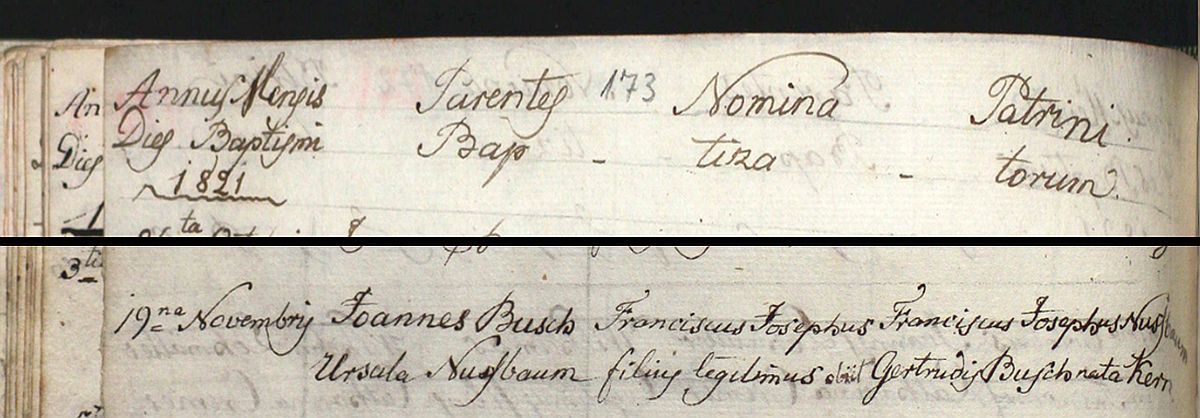 An
Dies
Annus Mensis Parentes 173 Nomina Patrini
Dies Baptismi Bap - tiza - torum.
1821
3tia
19na Novembris Joannes Busch Franciscus Josephus Franciscus Josephus Nussbaum
Ursula Nussbaum filius legitimus obiit Gertrudis Busch nata Kern